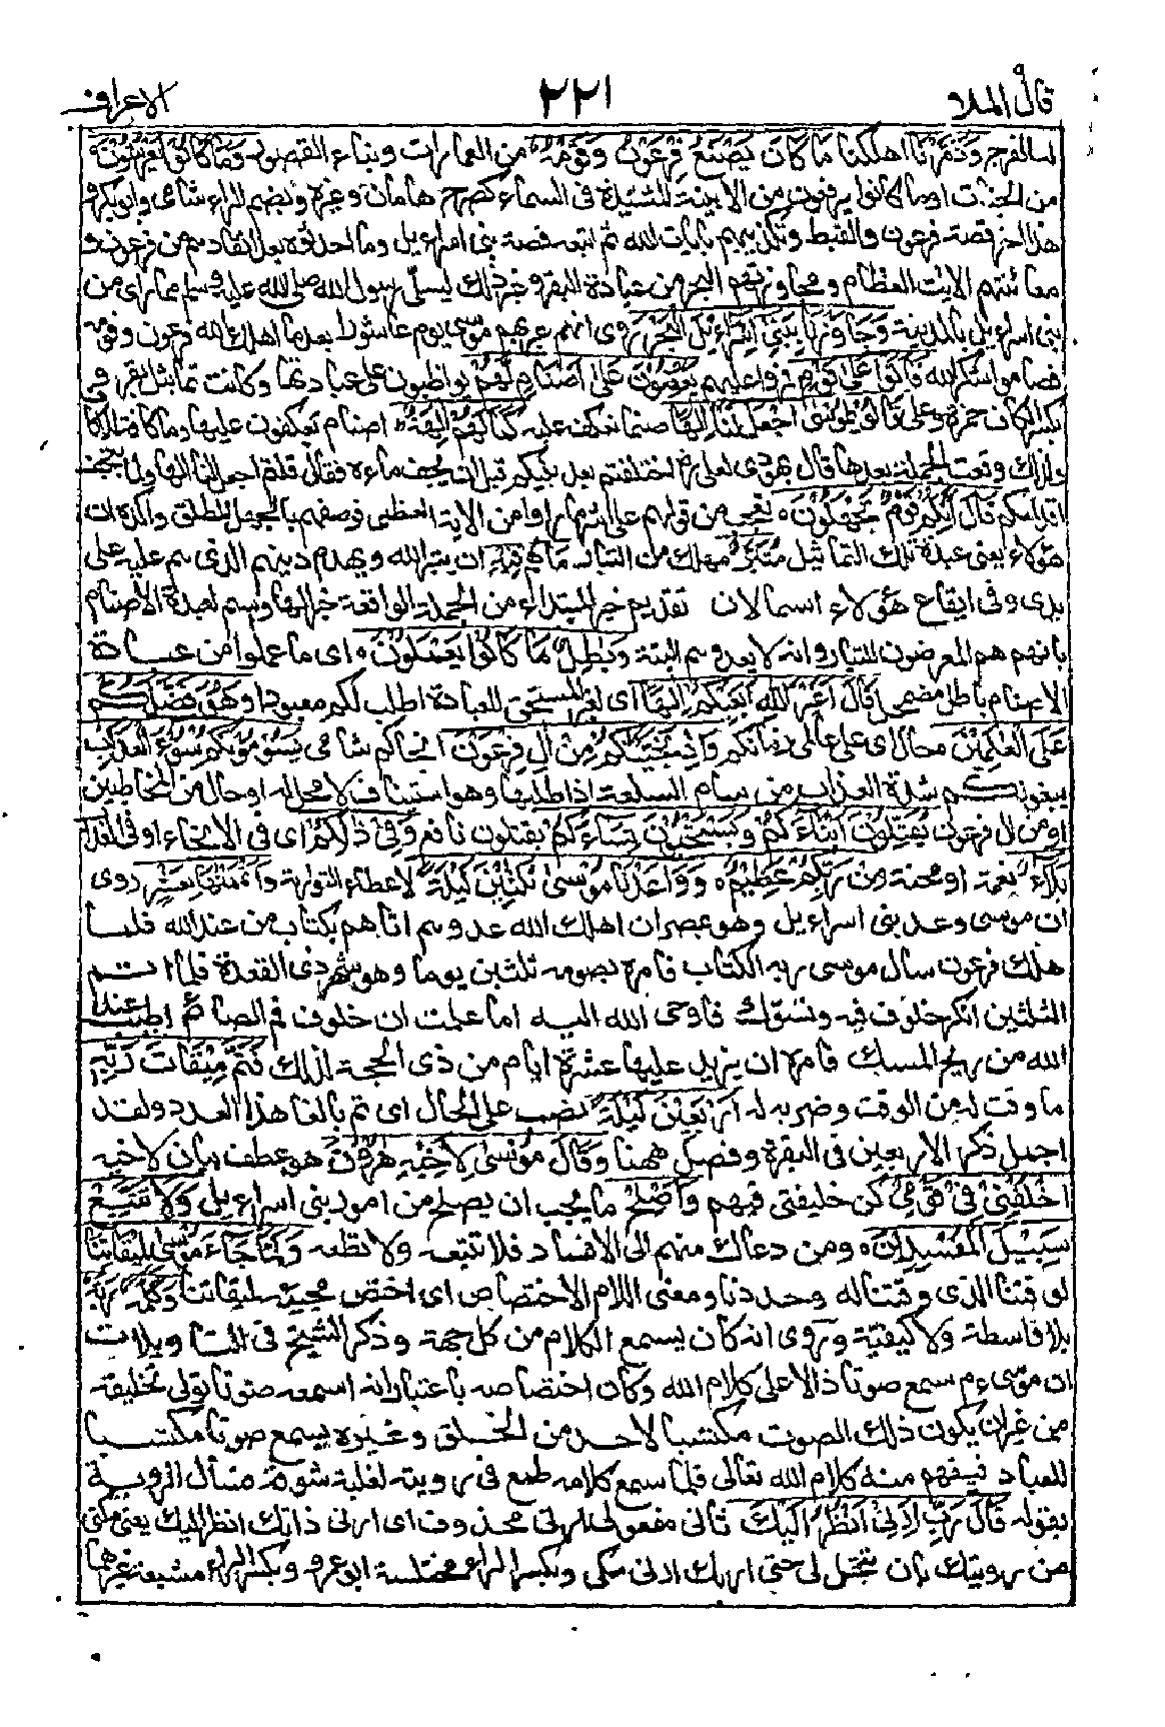 قال الملأ ٩
٢٢١
الاعراف
بالفرج وَدَمَّرْنَا اهلكنا مَا كَانَ يَصْنَعُ فِرْعَوْنُ وَقَوْمُهُ من العمارات وبناء القصور وَمَا كَانُوْا يَعْرِشُوْنَ
من الجنات او ما كانوا يرفعون من الابنية المشيدة فى السماء كصرح هامان وغيره وبضم الراء شامى وابوبكر و
هذا اخر قصة فرعون والقبط وتكذيبهم بايات الله ثم اتبعه قصة بنى اسراءيل وما احدثوه بعد انقاذهم من فرعون و
معاينتهم الايات العظام ومجاوزتهم البحر من عبادة البقر وغير ذلك ليسلّى رسول الله صلى الله عليه وسلم مما راى من
بنى اسراءيل بالمدينة وَجَاوَزْنَا بِبَنِىْ اِسْرَاءِيْلَ الْبَحْرَ روى انهم عبر بهم موسى يوم عاشورا بعد ما اهلك الله فرعون وقومه
فصاموا شكرا لله فَاَتَوْا عَلٰى قَوْمٍ فمروا عليهم يَعْكُفُوْنَ عَلٰى اَصْنَامٍ لَهُمْ يواظبون على عبادتها وكانت تماثيل بقر وفى
بكسر الكاف حمزة وعلى قَالُوْا يٰمُوْسَى اجْعَلْ لَنَا اِلٰهًا صنما نعكف عليه كَمَا لَهُمْ اٰلِهَةٌ اصنام يعكفون عليها وما كافة للكاف
ولذلك وقعت الجملة بعدها قال يهودى لعلى رض اختلفتم بعد نبيكم قبل ان يجف ماءه فقال قلتم اجعل لنا الها ولما تجف
اقدامكم قَالَ اِنَّكُمْ قَوْمٌ تَجْهَلُوْنَ تعجب من قولهم على اثر ما راوا من الاية العظمى فوصفهم بالجهل المطلق واكده ان
هؤلاء يعنى عبدة تلك التماثيل مُتَبَّرٌ مهلك من التبار مَا هُمْ فِيْهِ ان يتبر الله ويهدم دينهم الذى هم عليه على
يدى وفى ايقاع هؤلاء اسما لان تقديم خبر المبتداء من الجملة الواقعة خبرا لها وسم لعبدة الاصنام
بانهم هم المعرضون للتبار وانه لا يعدوهم البتة وَبٰطِلٌ مَا كَانُوْا يَعْمَلُوْنَ اى ما عملوا من عبادة
الاصنام باطل مضمحل قَالَ اَغَيْرَ اللهِ اَبْغِيْكُمْ اِلٰهًا اى اغير المستحق للعبادة اطلب لكم معبودا وَهُوَ فَضَّلَكُمْ
عَلَى الْعٰلَمِيْنَ حال اى على عالمى زمانكم وَاِذْ اَنْجَيْنٰكُمْ مِنْ اٰلِ فِرْعَوْنَ انجاكم شامى يَسُوْمُوْنَكُمْ سُوْءَ الْعَذَابِ
يبغونكم شدة العذاب من سام السلعة اذا طلبها وهو استيناف لا محل له او حال من المخاطبين
او من ال فرعون يُقَتِّلُوْنَ اَبْنَاءَكُمْ وَيَسْتَحْيُوْنَ نِسَاءَكُمْ يقتلون نافع وَفِىْ ذٰلِكُمْ اى فى الانجاء او فى العذاب
بَلَاءٌ نعمة او محنة مِنْ رَبِّكُمْ عَظِيْمٌ وَوَاعَدْنَا مُوْسٰى ثَلٰثِيْنَ لَيْلَةً لاعطاء التوراية وَاَتْمَمْنٰهَا بِعَشْرٍ روى
ان موسى وعد بنى اسراءيل وهو بمصر ان اهلك الله عدوهم اتاهم بكتاب من عند الله فلما
هلك فرعون سال موسى ربه الكتاب فامره بصومه ثلثين يوما وهو شهر ذى القعدة فلما اتم
الثلثين انكر خلوف فيه وتسوك فاوحى الله اليه اما علمت ان خلوف فم الصائم اطيب عند
الله من ريح المسك فامره ان يزيد عليها عشرة ايام من ذى الحجة لذلك فَتَمَّ مِيْقَاتُ رَبِّهٖ
ما وقت له من الوقت وضربه له اَرْبَعِيْنَ لَيْلَةً نصب على الحال اى تم بالغا هذا العدد ولقد
اجمل ذكر الاربعين فى البقرة وفصل ههنا وَقَالَ مُوْسٰى لِاَخِيْهِ هٰرُوْنَ هو عطف بيان لاخيه
اخْلُفْنِىْ فِىْ قَوْمِىْ كن خليفتى فيهم وَاَصْلِحْ ما يجب ان يصلح من امور بنى اسراءيل وَلَا تَتَّبِعْ
سَبِيْلَ الْمُفْسِدِيْنَ ومن دعاك منهم الى الافساد فلا تتبعه ولا تطعه وَلَمَّا جَاءَ مُوْسٰى لِمِيْقَاتِنَا
لوقتنا الذى وقتنا له وحددنا ومعنى اللام الاختصاص اى اختص مجيئه لميقاتنا وَكَلَّمَهُ رَبُّهُ
بلا واسطة ولا كيفية وروى انه كان يسمع الكلام من كل جهة وذكر الشيخ فى التاويلات
ان موسى ءم سمع صوتا دالا على كلام الله وكان اختصاصه باعتبار انه اسمعه صوتا تولى تخليقه
من غير ان يكون ذلك الصوت مكتسبا لاحد من الخلق وغيره يسمع صوتا مكتسبا
للعباد فيفهم منه كلام الله تعالى فلما سمع كلامه طمع فى رويته لغلبة شوقه فسأل الروية
بقوله قَالَ رَبِّ اَرِنِىْ اَنْظُرْ اِلَيْكَ ثانى مفعولى ارنى محذوف اى ارنى ذاتك انظر اليك يعنى مكنى
من رويتك بان تتجلى لى حتى اريك ارنى مكى وبكسر الراء مختلسة ابوعمرو وبكسر الراء مشبعة غيرهما